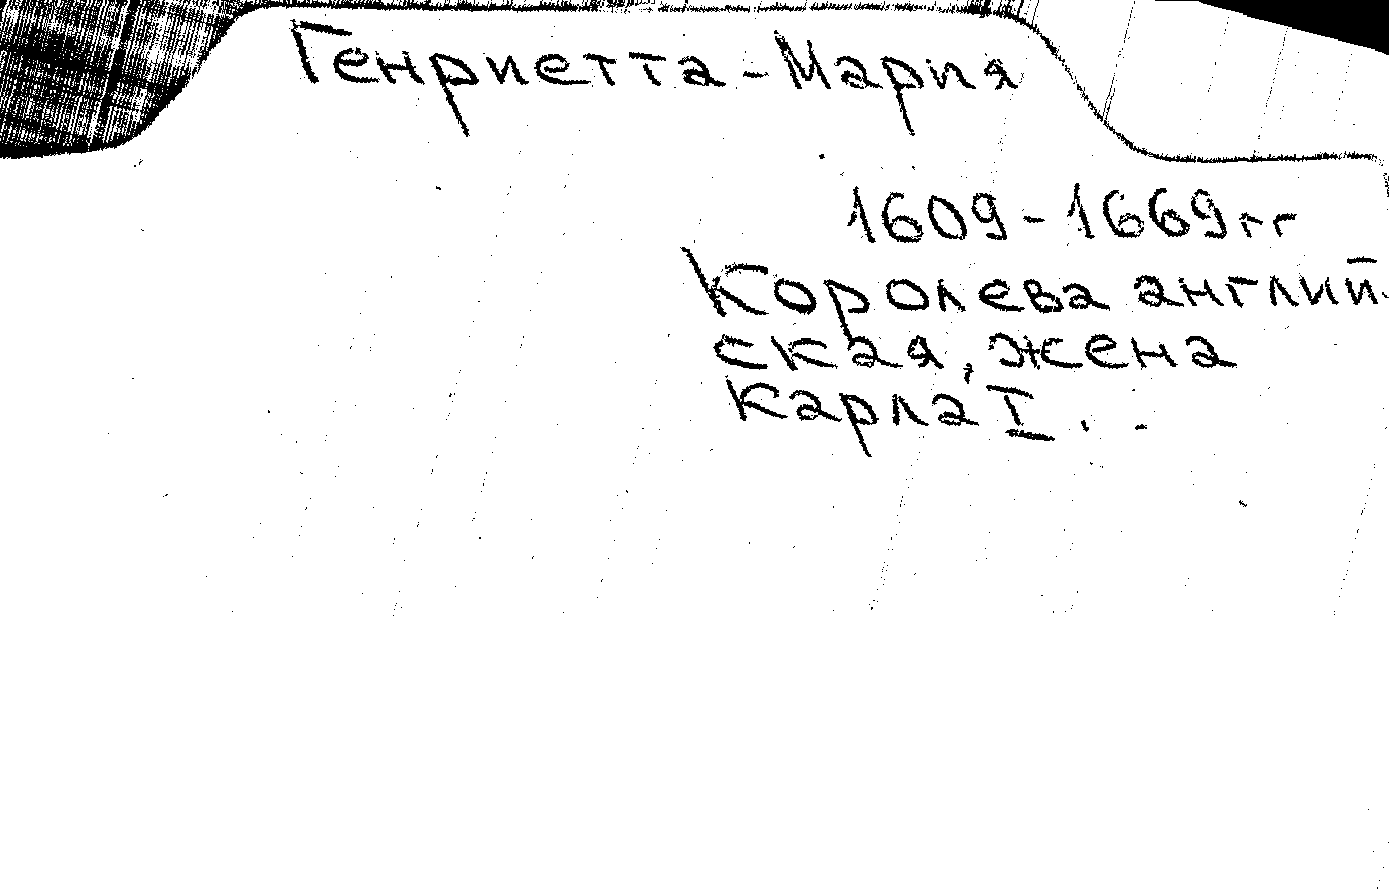 Генриетта-Мария
1609-1669гг
Королева англий-
ская, жена
Карла I.